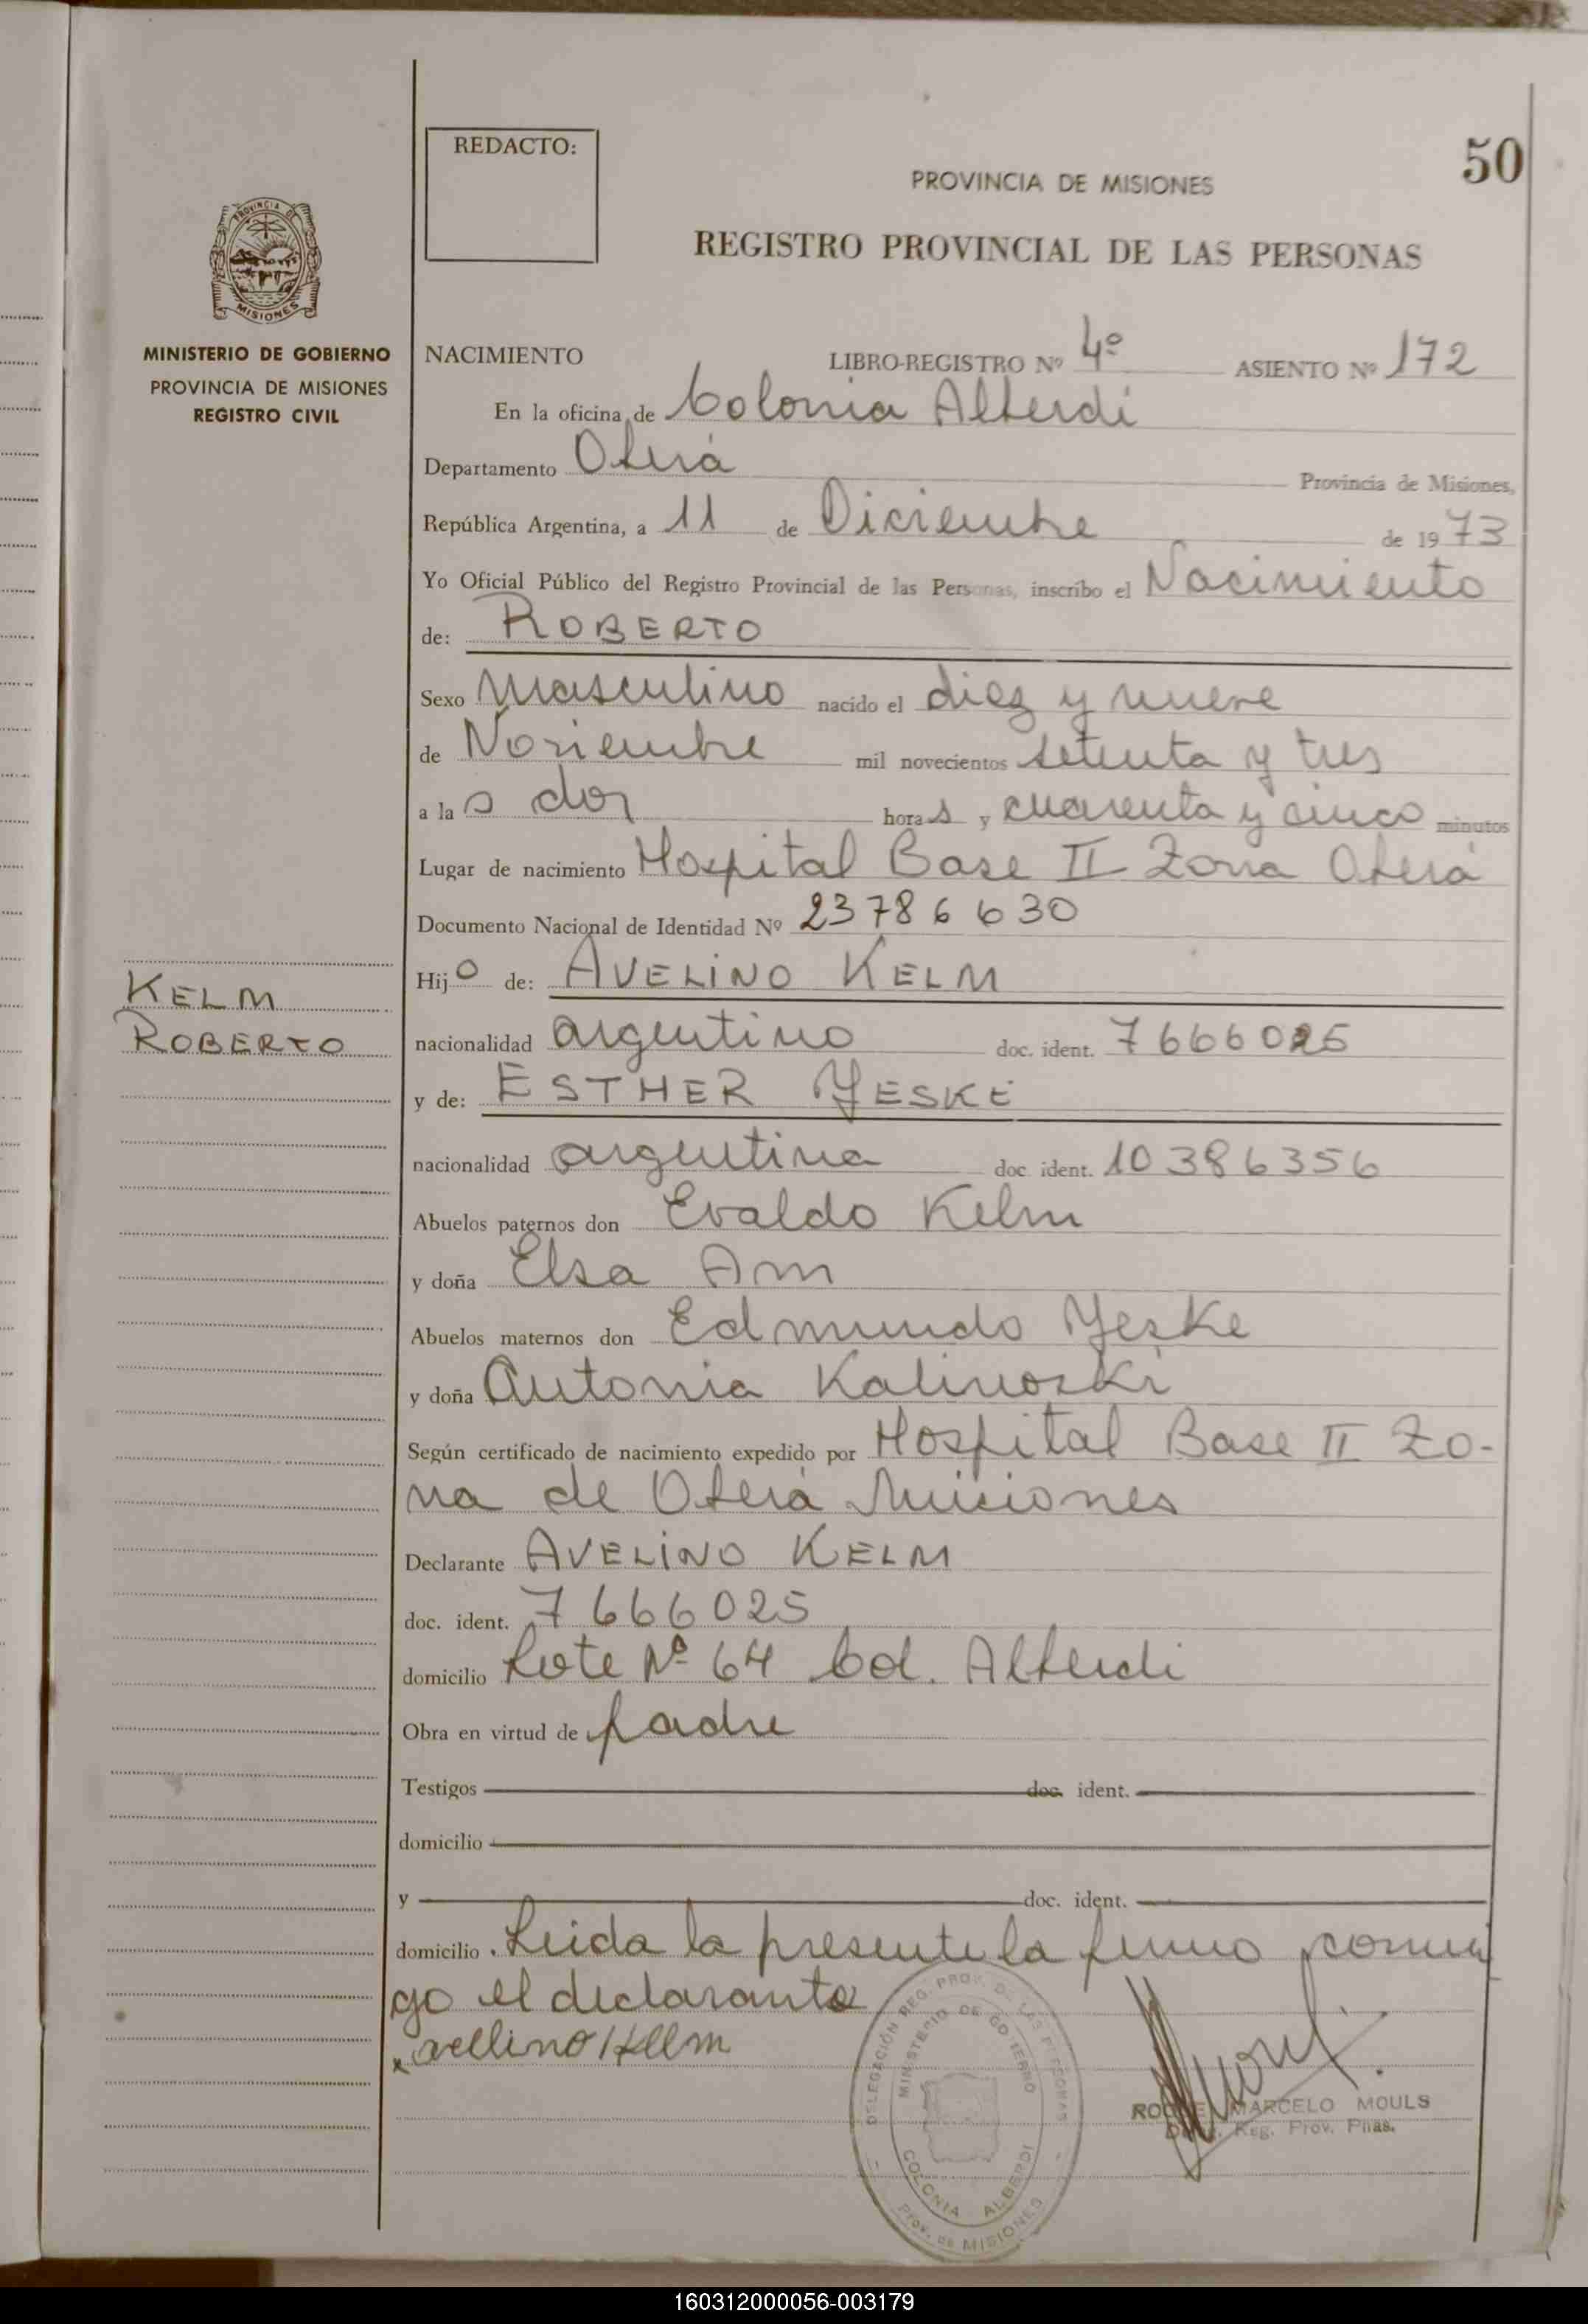 50
REDACTO:
PROVINCIA DE MISIONES
REGISTRO PROVINCIAL DE LAS PERSONAS
PROVINCIA DE
MISIONES
MINISTERIO DE GOBIERNO
PROVINCIA DE MISIONES
REGISTRO CIVIL
NACIMIENTO LIBRO-REGISTRO Nº 4º ASIENTO Nº 172
En la oficina de Colonia Alberdi
Departamento Oberá Provincia de Misiones,
República Argentina, a 11 de Diciembre de 1973
Yo Oficial Público del Registro Provincial de las Personas, inscribo el Nacimiento
de: ROBERTO
Sexo Masculino nacido el diez y nueve
de Noviembre mil novecientos setenta y tres
a las dos horas y cuarenta y cinco minutos
Lugar de nacimiento Hospital Base II Zona Oberá
Documento Nacional de Identidad Nº 23786630
Hijo de: AVELINO KELM
KELM
ROBERTO
nacionalidad argentino doc. ident. 7666025
y de: ESTHER YESKE
nacionalidad argentina doc ident. 10386356
Abuelos paternos don Evaldo Kelm
y doña Elsa Am
Abuelos maternos don Edmundo Yeske
y doña Antonia Kalinoski
Según certificado de nacimiento expedido por Hospital Base II Zo-
na de Oberá Misiones
Declarante AVELINO KELM
doc. ident. 7666025
domicilio Lote Nº 64 Col. Alberdi
Obra en virtud de padre
Testigos doc. ident.
domicilio
y doc. ident.
domicilio. Leida la presente la firmo conmi
go el declarante
x avellino Kellm
DELEGACIÓN REG. PROV. DE LAS PERSONAS
MINISTERIO DE GOBIERNO
COLONIA ALBERDI
Prov. de MISIONES
ROQUE MARCELO MOULS
Deleg. Reg. Prov. Pnas.
160312000056-003179